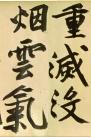 重滅没
烟雲氣